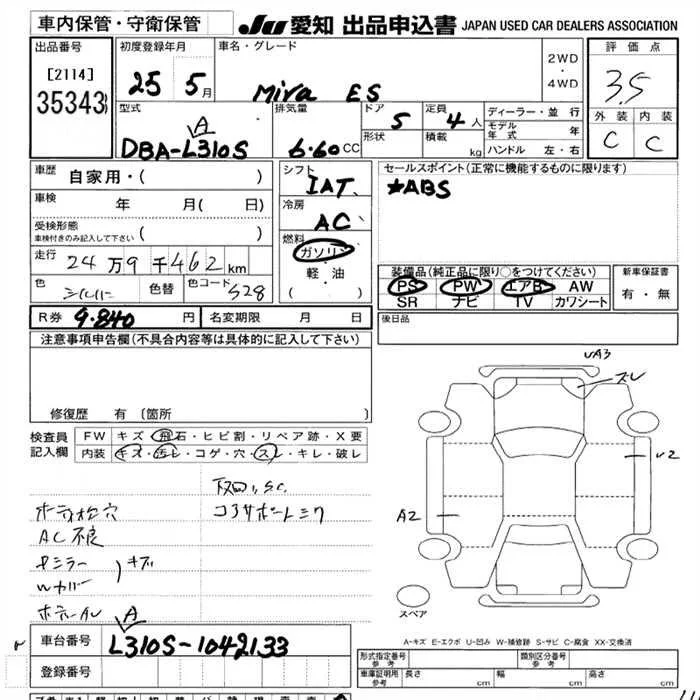 車内保管・守衛保管 JU 愛知 出品申込書 JAPAN USED CAR DEALERS ASSOCIATION
出品番号 初度登録年月 車名・グレード 2WD・4WD 評価点
[2114] 35343 25年 5月 Mira ES 3.5
型式 排気量 ドア 定員 ディーラー・並行 外装 内装
DBA-L310S A 6.60cc 5 4人 モデル年式 年 C C
形状 積載 kg ハンドル 左・右
車歴 自家用・( ) シフト IAT セールスポイント(正常に機能するものに限ります)
車検 年 月( 日) 冷房 AC ★ABS
受検形態 車検付きのみ記入して下さい ( ) 燃料 ガソリン
走行 24万9千462km 軽・油 装備品(純正品に限り○をつけてください) 新車保証書
色 シルバー 色替 色コード S28 ( ) PS PW エアB AW 有・無
SR ナビ TV カワシート
R券 9.840円 名変期限 月 日 後日品
注意事項申告欄(不具合内容等は具体的に記入して下さい)
修復歴 有 〔箇所
検査員記入欄 FW キズ・飛石・ヒビ割・リペア跡・X要
内装 キズ・汚レ・コゲ・穴・スレ・キレ・破レ
下回り,S.C.
コアサポートミク
AC不良
Fミラー
Wカバー
キズ
UA3
ズレ
U2
A2
スペア
A-キズ E-エクボ U-凹み W-補修跡 S-サビ C-腐食 XX-交換済
車台番号 L310S-1042133 A
登録番号
形式指定番号 参考 類別区分番号 参考
車庫証明用 参考 長さ cm 幅 cm 高さ cm